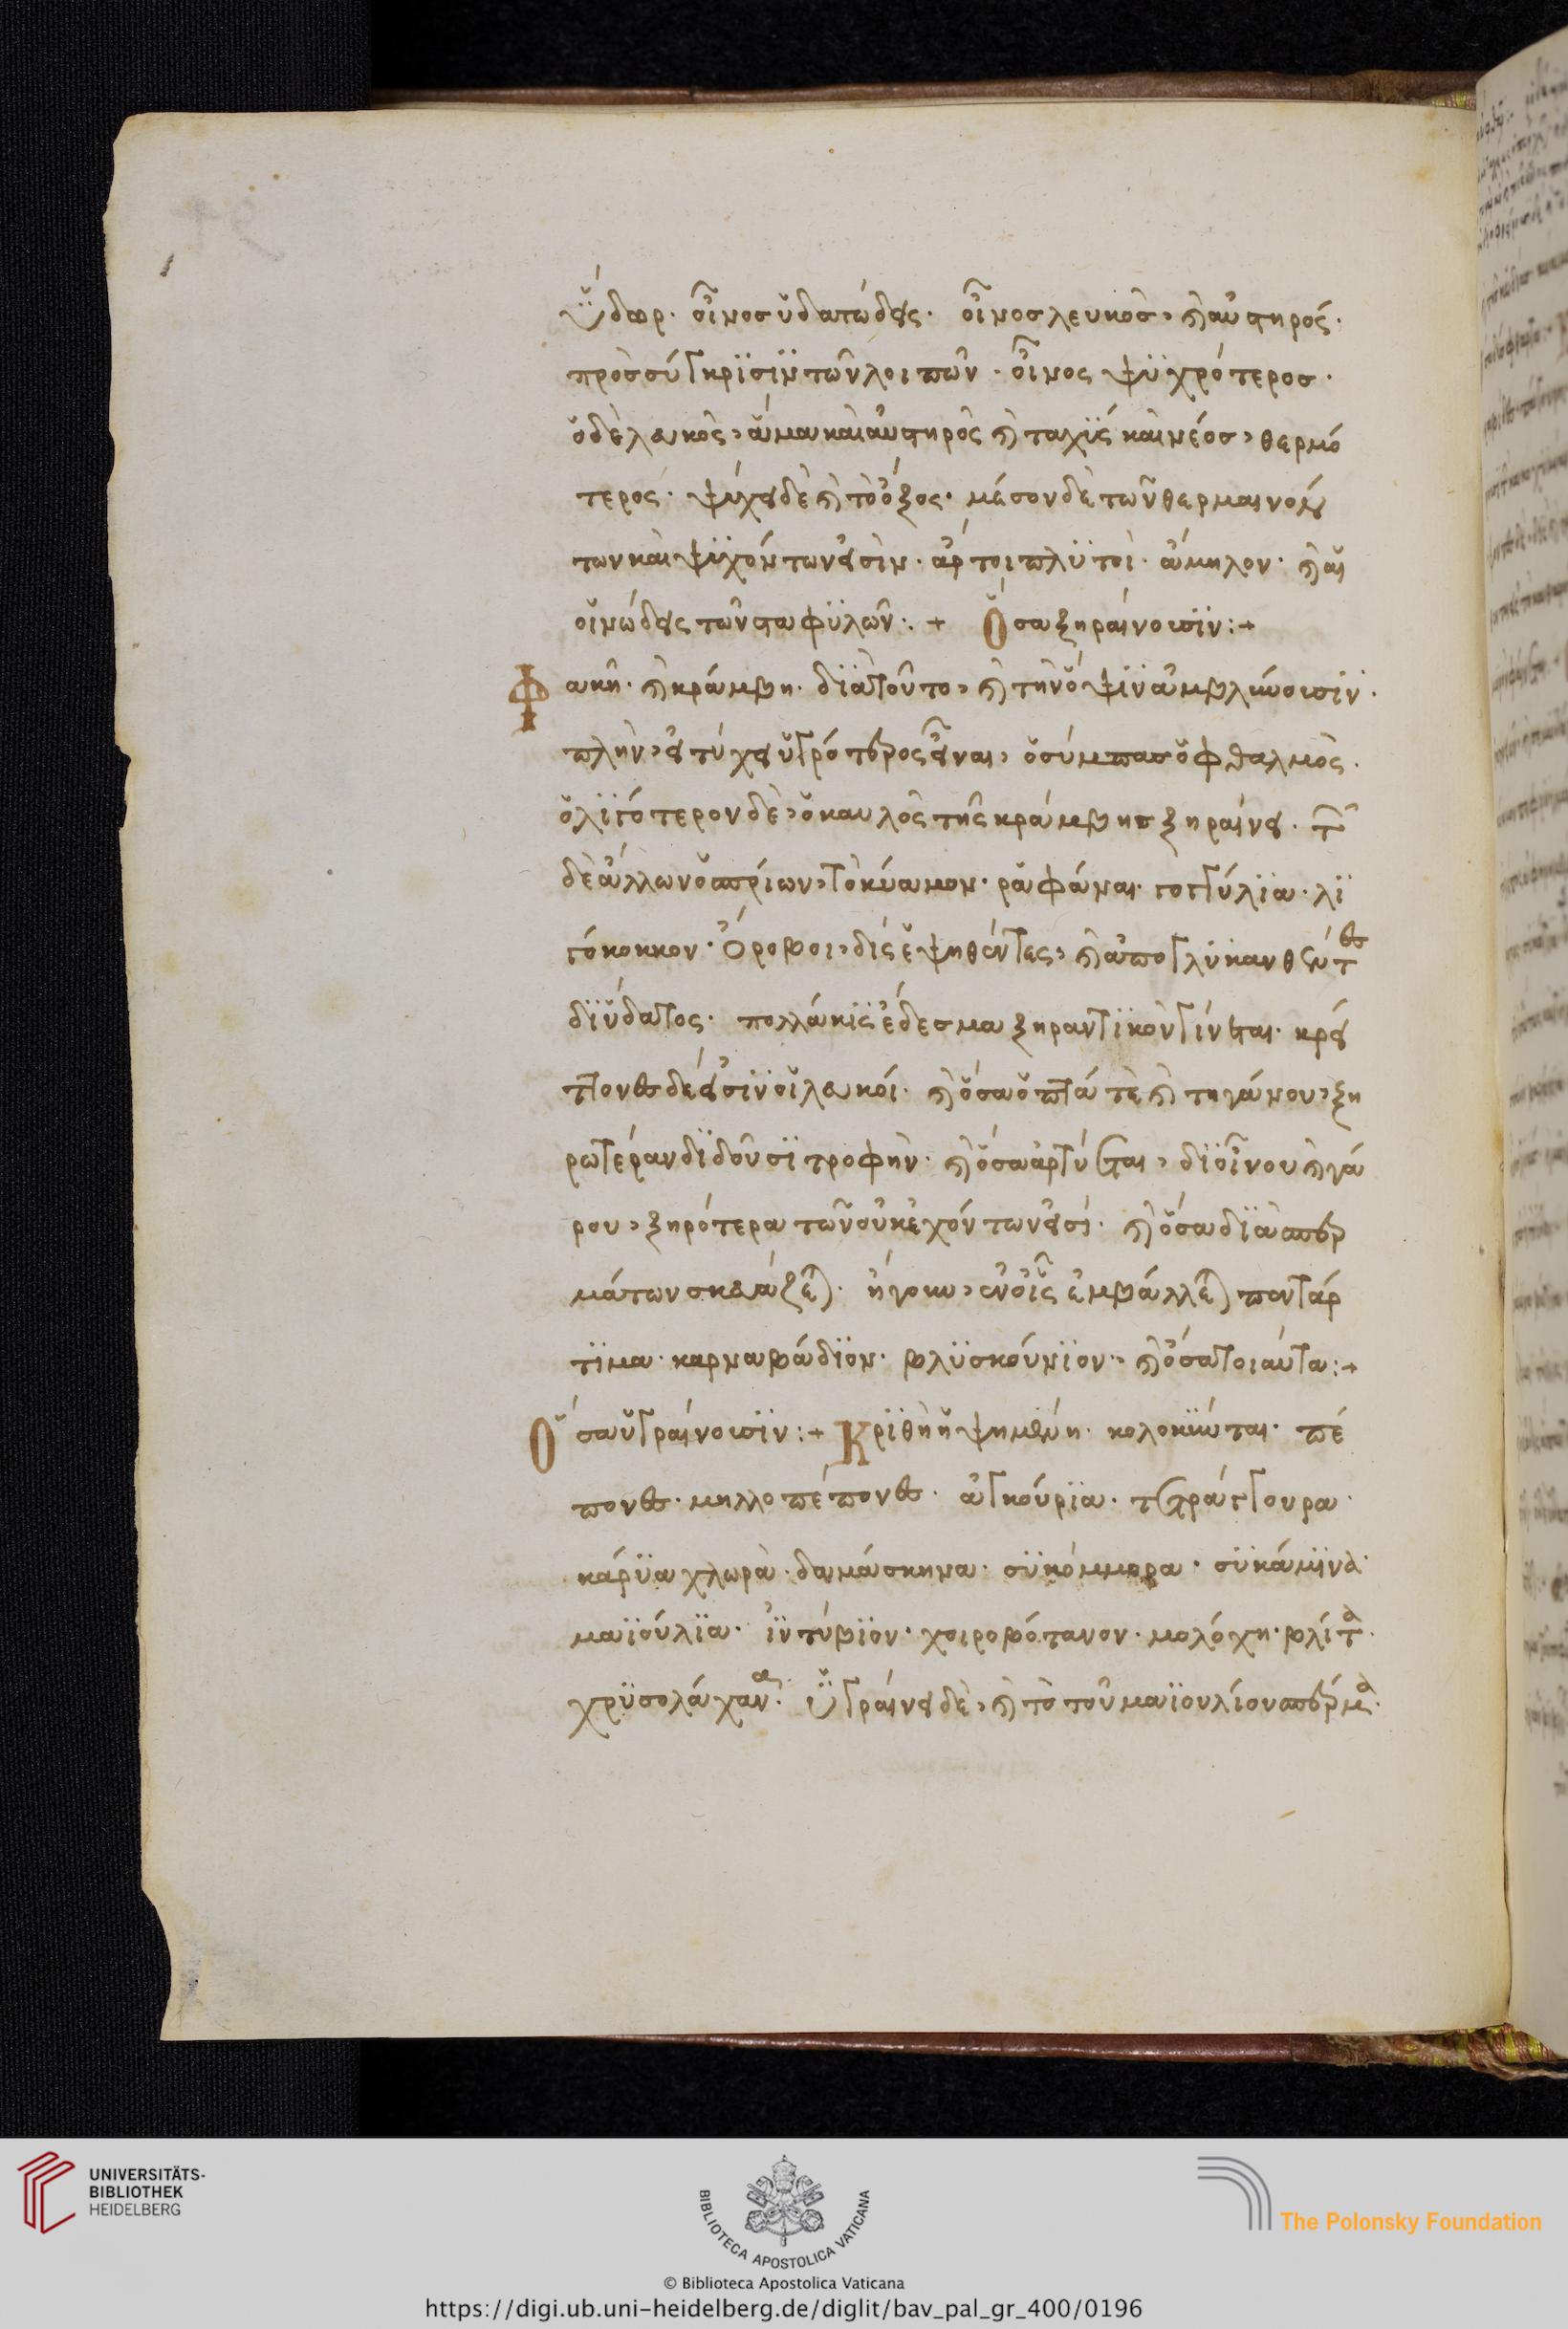 Ὕδωρ. οἶνος ὑδατώδης. οἶνος λευκὸς, καὶ αὐστηρός.
πρὸς σύγκρισιν τῶν λοιπῶν. οἶνος ψυχρότερος.
ὁ δὲ λευκὸς, ἅμα καὶ αὐστηρὸς καὶ παχὺς καὶ νέος, θερμό
τερος. ψύχει δὲ καὶ τὸ ὄξος. μέσον δὲ τῶν θερμαινόν
των καὶ ψυχόντων εἰσὶν. ἄρτοι πλυτοὶ. ἄμηλον. καὶ αἱ
οἰνώδεις τῶν σταφυλῶν:. + Ὅσα ξηραίνουσιν:+
Φακῆ. καὶ κράμβη. διὰ τοῦτο, καὶ τὴν ὄψιν ἀμβλύνουσιν.
πλὴν, εἰ τύχει ὑγρότερος εἶναι, ὁ σύμπας ὀφθαλμὸς.
ὀλιγότερον δὲ, ὁ καυλὸς τῆς κράμβης ξηραίνει. τῶν
δὲ ἄλλων ὀσπρίων, τὸ κύαμον. ῥαφάναι. γογγύλια. λι
γόκοκκον. Ὄροβοι, δὶς ἑψηθέντες, καὶ ἀπογλυκανθέντες
δι ὕδατος. πολλάκις ἔδεσμα ξηραντικὸν γίνεται. κρεί
ττονες δέ εἰσὶν οἱ λευκοί. καὶ ὅσα ὀπτά τὲ καὶ τηγάνου, ξη
ρωτέραν διδοῦσι τροφὴν. καὶ ὅσα ἀρτύεται, δι οἴνου καὶ γά
ρου, ξηρότερα τῶν οὐκ ἐχόντων εἰσί. καὶ ὅσα διὰ σπερ
μάτων σκευάζεται. ἤγουν, ἐν οἷς ἐμβάλλεται πονταρ
τιμα. καρναβάδιον. βλυσκούνιον. καὶ ὅσα τοιαῦτα:+
Ὅσα ὑγραίνουσιν:+ Κριθὴ ἡψημένη. κολοκύνται. πέ
πονες. μηλλοπέπονες. ἀγκούρια. τετράγγουρα.
κάρυα χλωρὰ. δαμάσκηνα. συκόμμορα. συκάμινα.
μαϊούλια. ἰντύβιον. χοιροβότανον. μολόχη. βλίτα.
χρυσολάχανα. Ὑγραίνει δὲ, καὶ τὸ τοῦ μαϊουλίου σπέρμα.
UNIVERSITÄTS-
BIBLIOTHEK
HEIDELBERG
BIBLIOTECA APOSTOLICA VATICANA
The Polonsky Foundation
© Biblioteca Apostolica Vaticana
https://digi.ub.uni-heidelberg.de/diglit/bav_pal_gr_400/0196